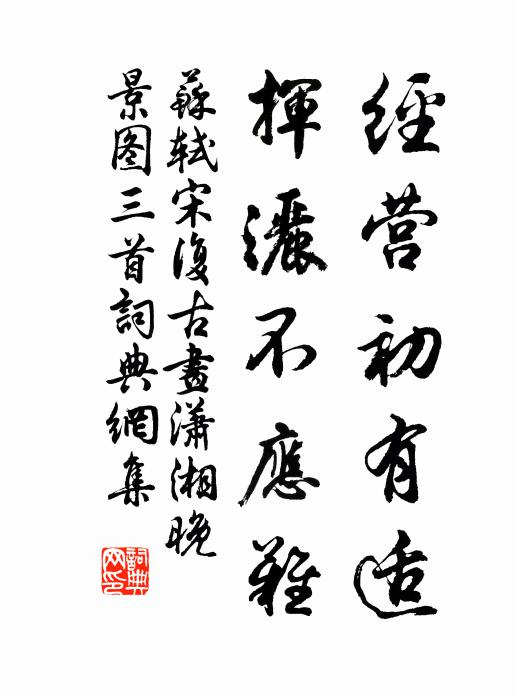 經营初有适
揮灑不應難
蘇軾宋復古畫瀟湘晚
景图三首詞典網集
詞典网印